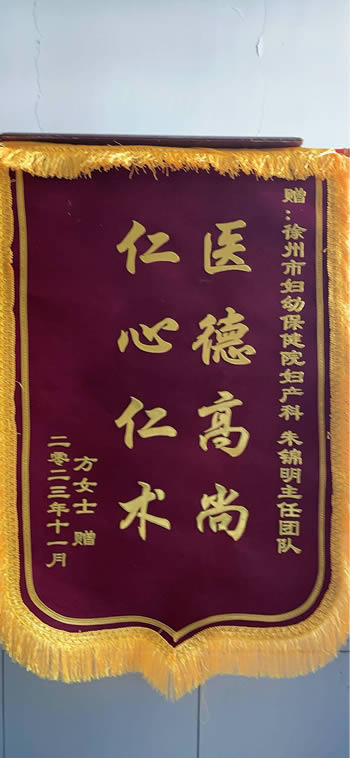 赠：徐州市妇幼保健院妇产科 朱锦明主任团队
医德高尚
仁心仁术
方女士 赠
二零二三年十一月